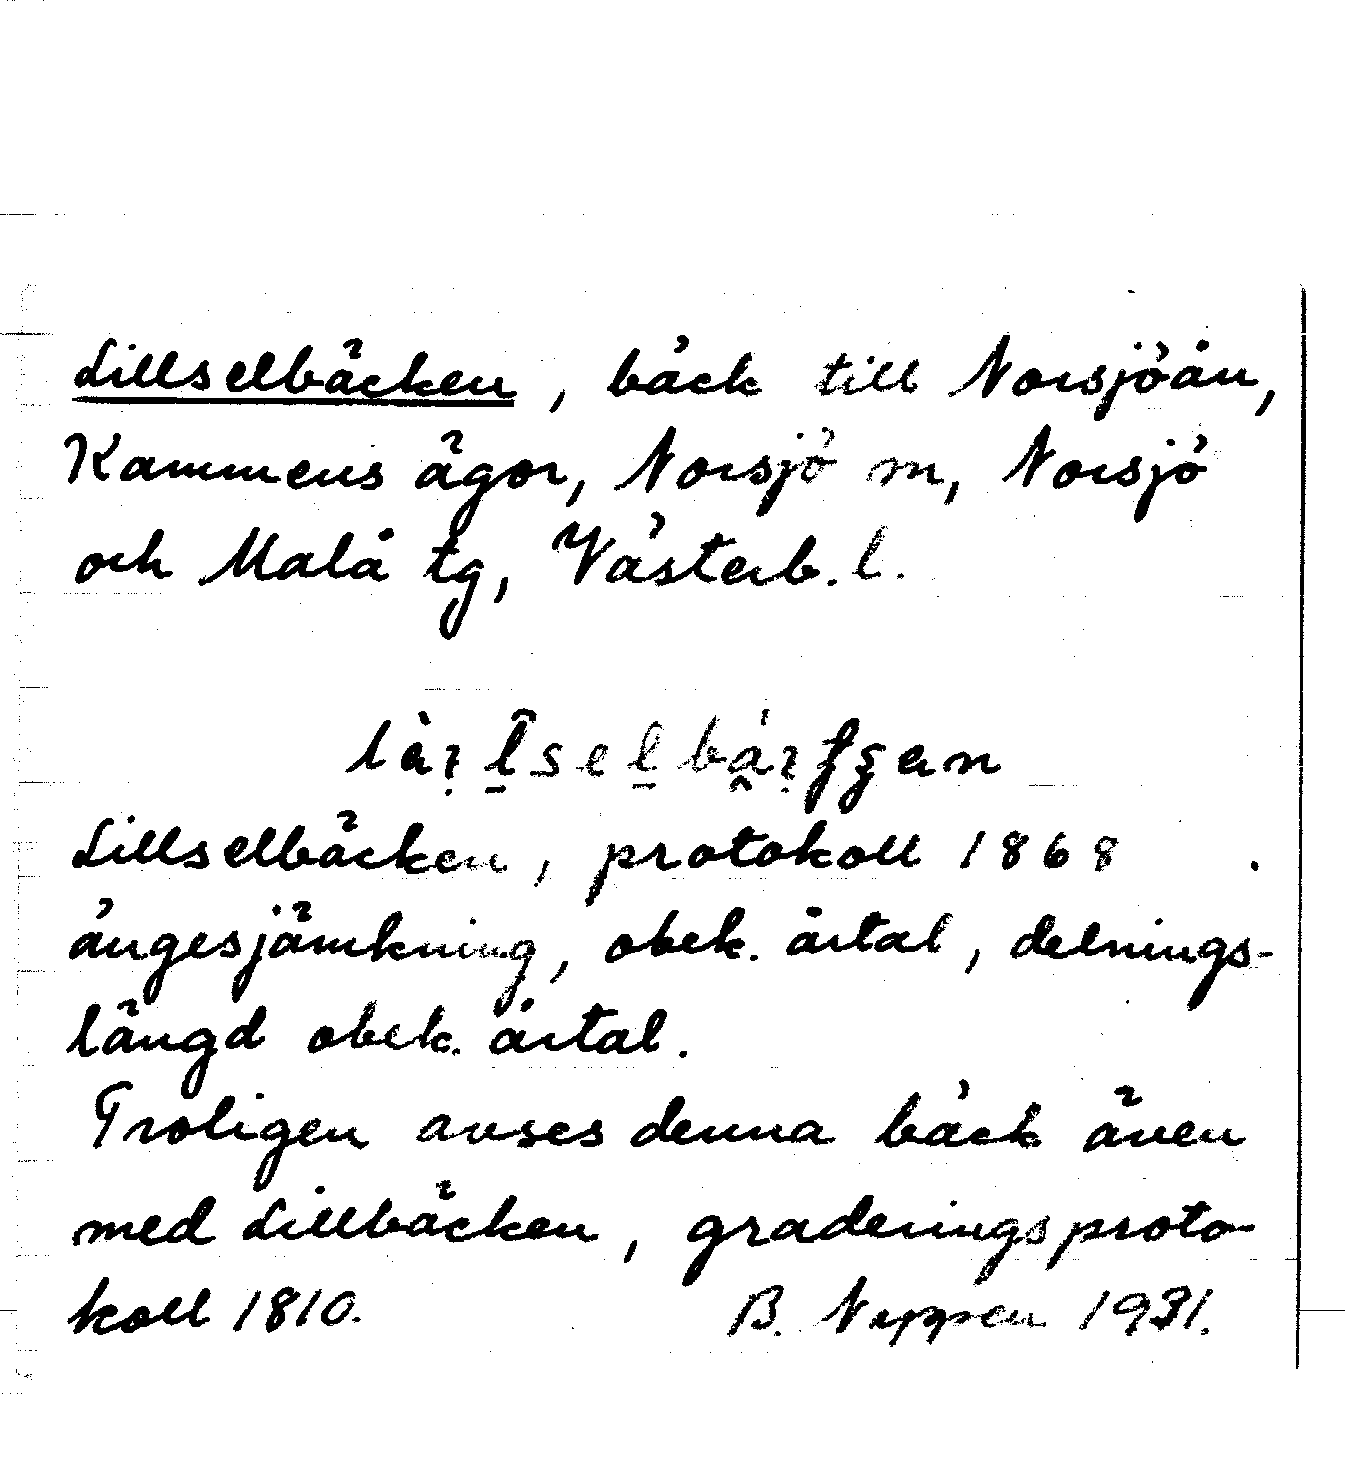 Lillselbäcken, bäck till Norsjöån,
Kammens ägor, Norsjö m, Norsjö
och Malå tg, Västerb. l.
Lillselbäcken, protokoll 1868 .
ängesjämkning, obek. årtal, delnings-
längd obek. årtal.
Troligen avses denna bäck även
med Lillbäcken, graderingsproto-
koll 1810. B. 1931.